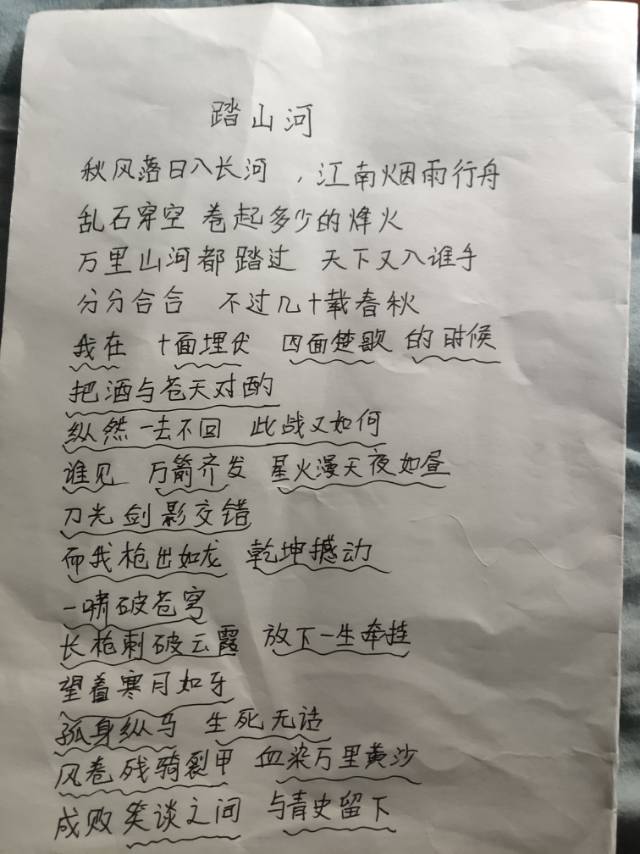 踏山河
秋风落日入长河 , 江南烟雨行舟
乱石穿空 卷起多少的烽火
万里山河都踏过 天下又入谁手
分分合合 不过几十载春秋
我在 十面埋伏 四面楚歌 的时候
把酒与苍天对酌
纵然一去不回 此战又如何
谁见 万箭齐发 星火漫天夜如昼
刀光剑影交错
而我枪出如龙 乾坤撼动
一啸破苍穹
长枪刺破云霞 放下一生牵挂
望着寒月如牙
孤身纵马 生死无话
风卷残骑裂甲 血染万里黄沙
成败笑谈之间 与青史留下